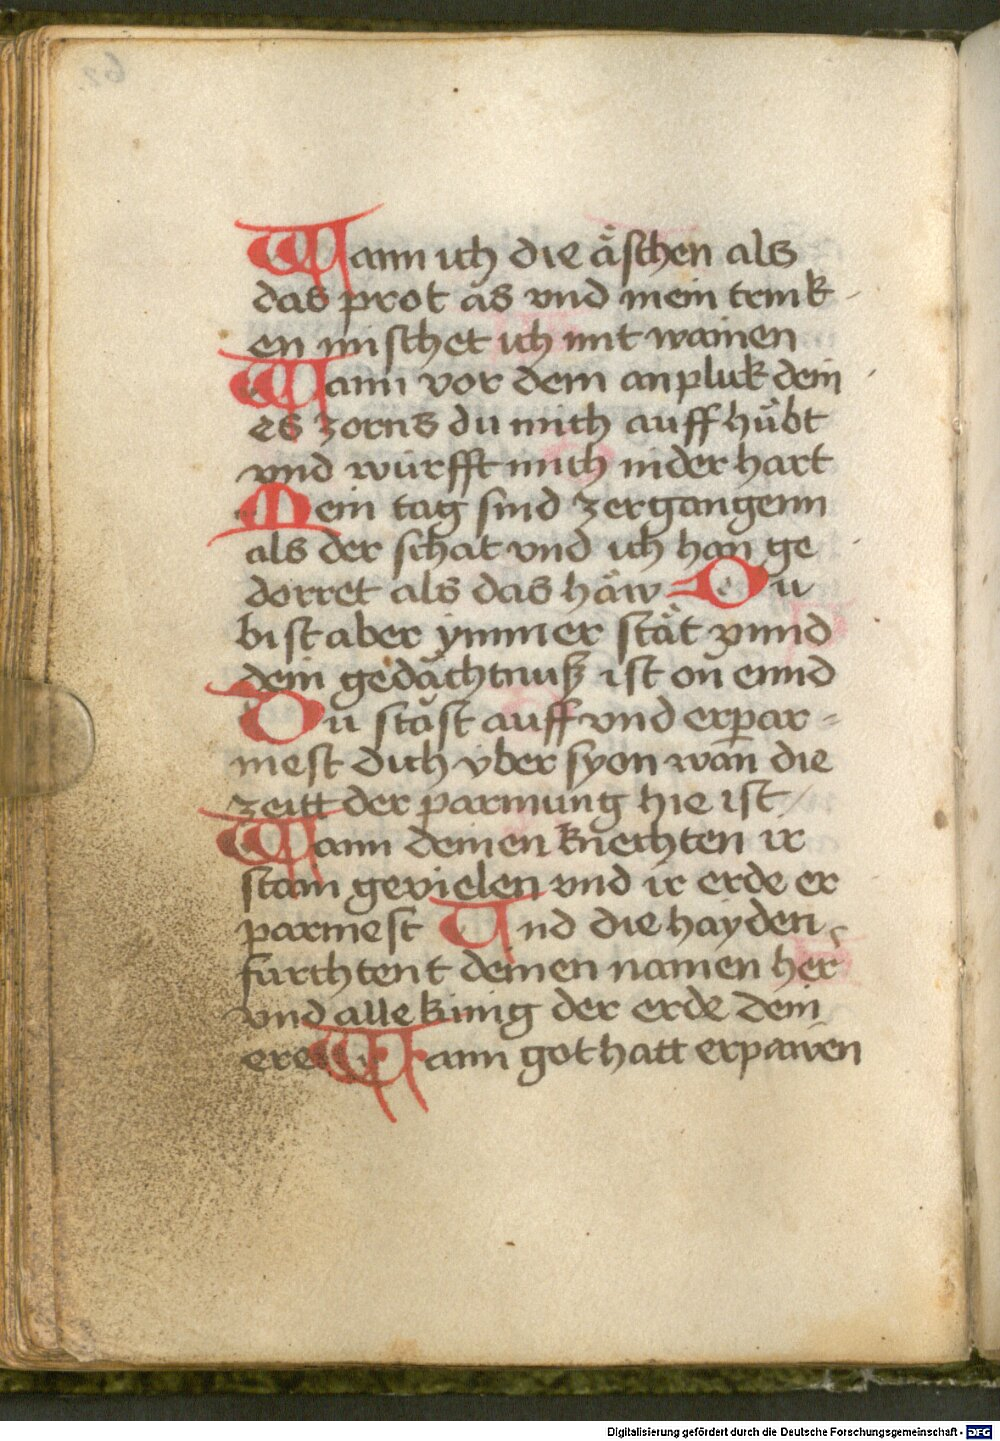 Wann ich die äschen als
das prot as vnd mein trink
en mischet ich mit wainen
Wann vor dem anpluk dein
es zorns du mich auff hübt
vnd würfft mich nider hart
Mein tag sind zergangenn
als der schat vnd ich han ge
dorret als das häw Du
bist aber ymmer stät vnnd
dein gedächtnuß ist on ennd
Du stast auff vnd erpar=
mest dich vber syon wan die
zeitt der parmung hie ist
Wann deinen knechten ir
stain gevielen vnd ir erde er
parmest Und die hayden
fürchtent deinen namen her
vnd alle künig der erde dein
ere Wann got hatt erpawen
Digitalisierung gefördert durch die Deutsche Forschungsgemeinschaft - DFG